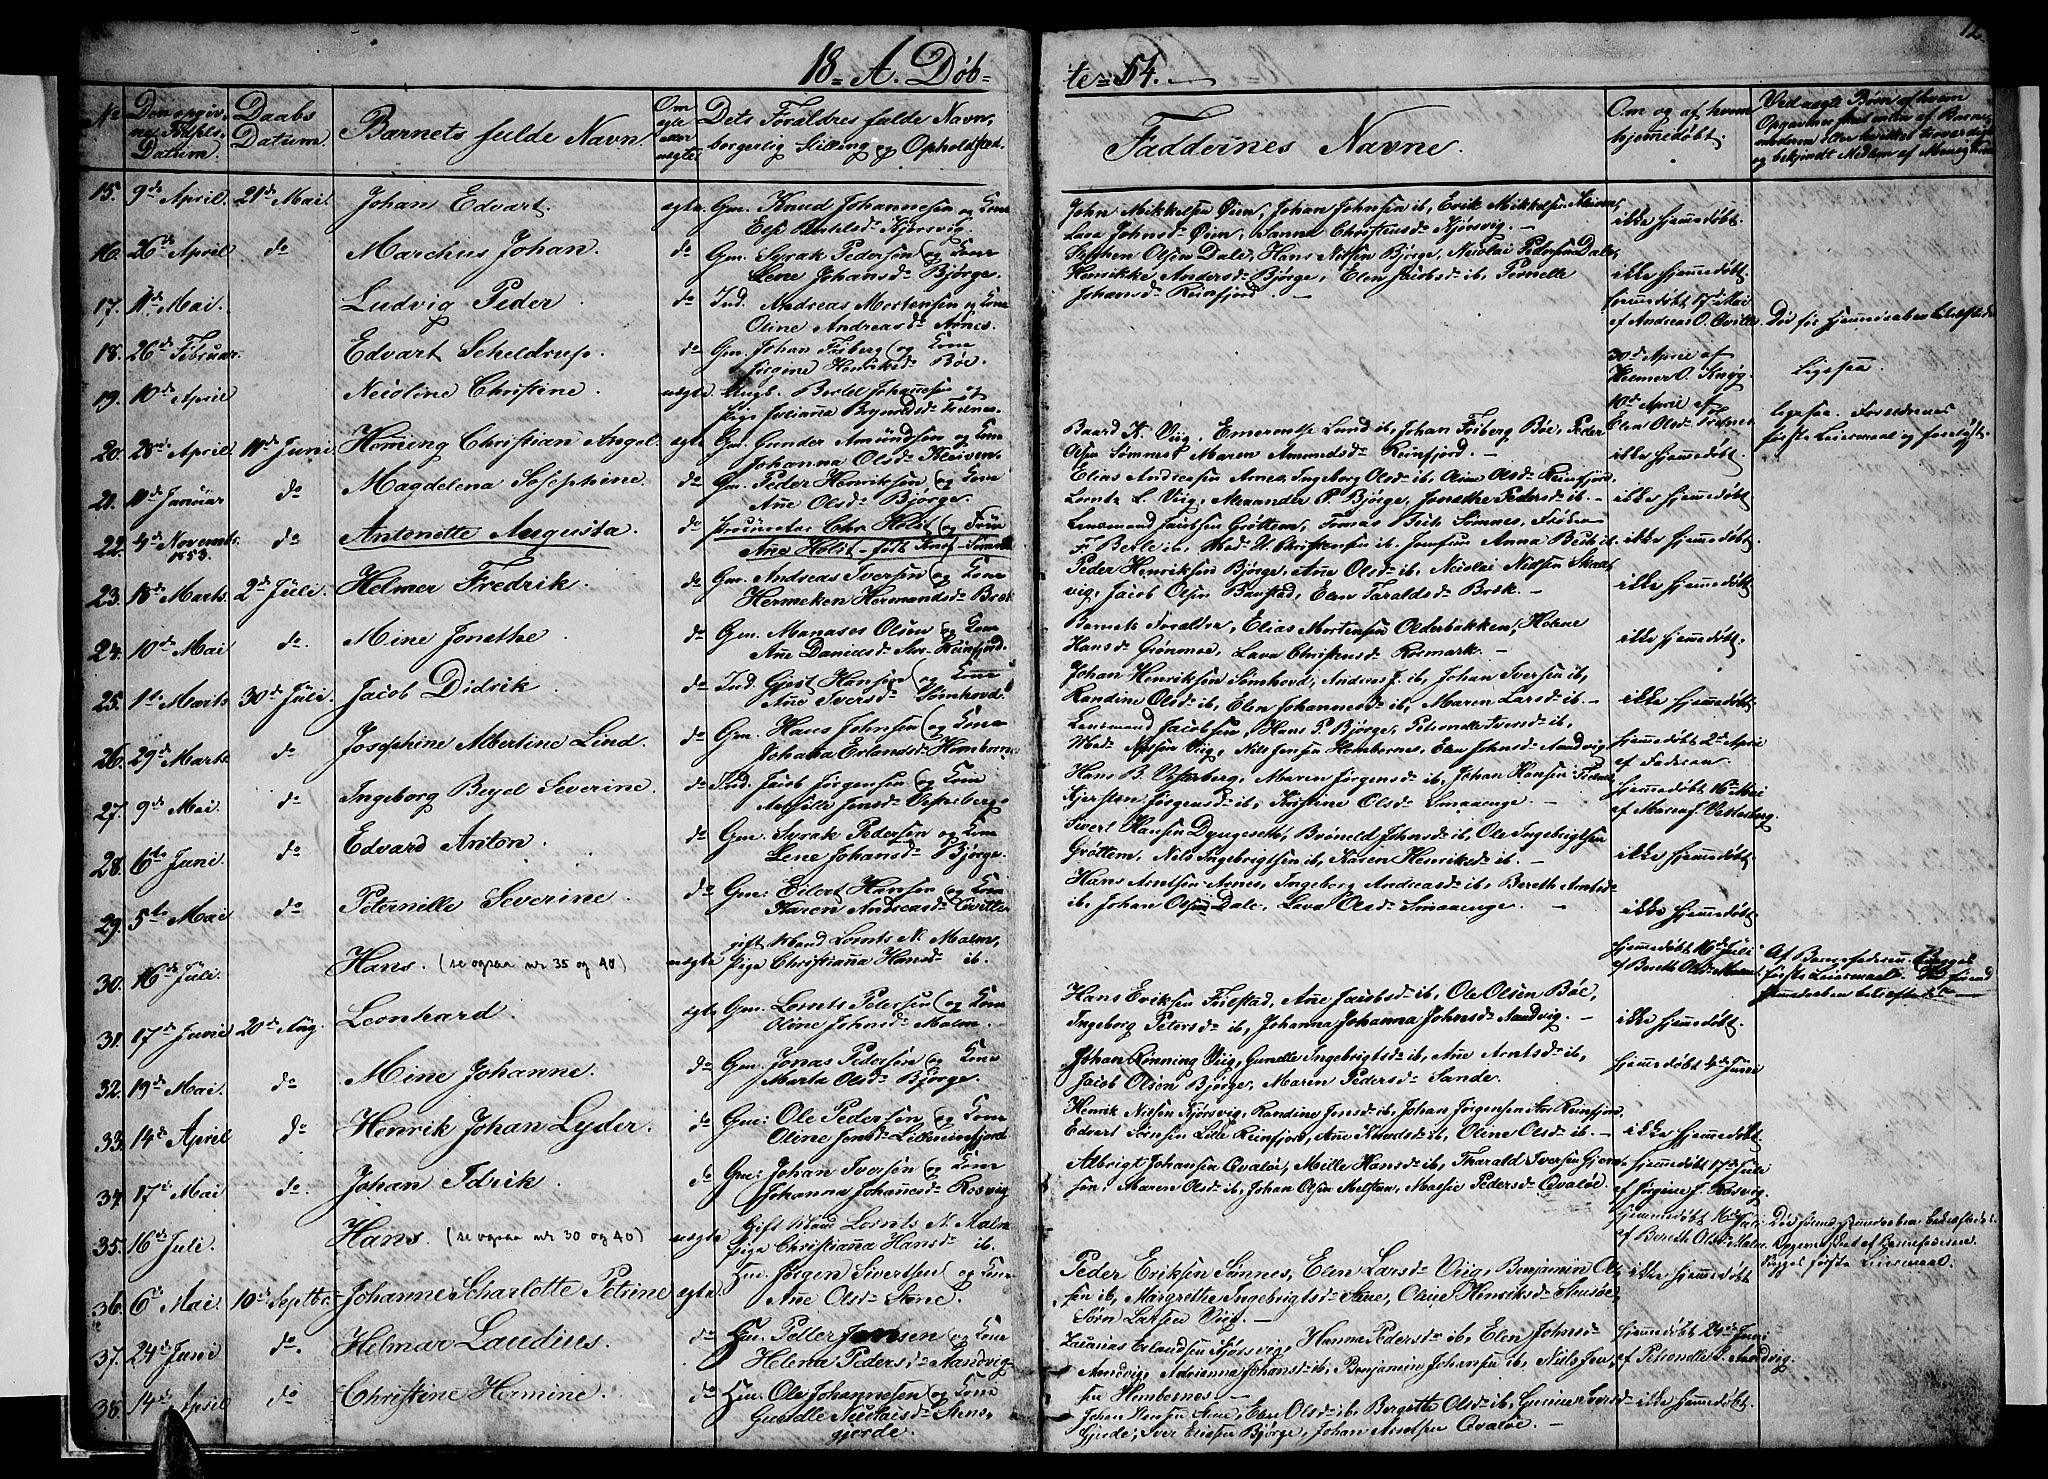 12.
18 = A. Døb=
te = 54.
No
Den opgiv-
ne Fødsels
Datum.
Daabs
Datum.
Barnets fulde Navn.
Om
ægte
eller
uægte
Dets Forældres fulde Navn,
borgerlig Stilling og Opholdssted.
Faddernes Navne.
Om og af hvem
hjemmedøbt.
Ved uægte Børn af hvem
Opgavnes
15. 9de April. 21de Mai. Johan Edvart. ægte Gm. Knud Johannesen og Kone
Else Kjørsvig.
John Mikkelsen Øien, Johan Johnsen ib, Erik Mikkelsen
Lava Johnsd. Øien, Sanna Christensd. Kjørsvig. ikke hjemmedøbt.
16. 26de April do Marchus Johan. do Gm. Syrak Pedersen (og Kone
Lene Johansd. Bjørge.
Steffen Olsen Dale, Hans Nilsen Bjørge, Nicolai Pedersen Dale,
Henrikke Andersd. Bjørge, Elen Jacobsd. ib, Pernelle
Johansd. Reinfjord. ikke hjemmedøbt.
17. 11de Mai. Ludvig Peder do Ind. Andreas Mortensen og Kone
Oline Andreasd. Arnes.
hjemmedøbt 17de Mai
af Andreas O. Qville. Død før hjemmedaaben bekræftedes
18. 26de Februar. Edvart Scheldrup. do Gm. Johan Friberg (og Kone
Jørgine Henriksd. Bøe.
30de April af
Helmer O. Ligesaa.
19. 10de April Nicoline Christine uægte Ungk. Bertel Johannesen og
Pige Juliana
10de April af
Elen Olsd. ligesaa. Forældrenes
første Leiermaal og forelovet.
20. 28de April 11de Juni Henning Christian Angel. ægte Gm. Gunder Amundsen og Kone
Johanna Olsd. Kleiven.
Baard K. Viig, Emerentse Lund ib, Johan Friberg Bøe, Peder
Olsen Sømnes, Maren Amundsd. Reinfjord. ikke hjemmedøbt.
21. 11de Januar do Magdelena Josephine. do Gm. Peder Henriksen (og Kone
Ane Olsd. Bjørge.
Elias Andreasen Arnes, Ingeborg Olsd. ib, Oline Olsd. Reinfjord,
Lornts L. Viig, Alexander P. Bjørge, Jonethe Pedersd. ib. ikke hjemmedøbt.
22. 4de Novembr.
1853. do Antonette Augusta. do Procurator Chr. Holst (og Frue
Ane Holst født
Lensmand Jacobsen Grøttem, Tomas Bech Sømnes, Frøken
F. Berle ib, Mad. H. Christensen ib, Jomfrue Anna Bech ib. ikke hjemmedøbt.
23. 18de Marts. 2de Juli. Helmer Fredrik. do Gm. Andreas Iversen (og Kone
Hermeken Hermandsd. Bræk
Peder Henriksen Bjørge, Ane Olsd. ib, Nicolai Nilsen
vig, Jacob Olsen Baustad, Elen Taraldsd. Bræk. ikke hjemmedøbt.
24. 10de Mai do. Mine Jonethe. do Gm. Manases Olsen (og Kone
Ane Danielsd. Str. Reinfjord.
Barnets Forældre, Elias Mortensen Olderbakken, Helene
Hansd. Grønmoe, Lava Christensd. Rosmark. ikke hjemmedøbt.
25. 1ste Marts 30de Juli. Jacob Didrik. do Ind. Gjert Hansen (og Kone
Ane Iversd. Sømhovd.
Johan Henriksen Sømhovd, Anders J. ib, Johan Iversen ib,
Randine Olsd. ib, Elen Johannesd. ib, Maren Larsd. ib. ikke hjemmedøbt.
26. 29de Marts do Josephine Albertine Lind. do Gm. Hans Johnsen (og Kone
Johana Erlandsd. Hombornes.
Lensmand Jacobsen, Hans P. Bjørge, Petronelle Iversd. ib,
Viig, Nils Jensen Hombornes, Elen Johnsd. Sandvig hjemmedøbt 2de April
af Faderen.
27. 9de Mai do Ingeborg Beyel Severine. do Ind. Jacob Jørgensen (og Kone
Jensd. Vetterberg.
Hans B. Vetterberg, Maren Jørgensd. ib, Johan Hansen
Kjersten Jørgensd. ib, Kristine Olsd. Smaaenge. hjemmedøbt 16de Mai
af Maren J. Vetterberg.
28. 6te Juni. do Edvard Anton. do Gm. Syrak Pedersen (og Kone
Lene Johansd. Bjørge.
Sivert Hansen Dyngeseth, Brøneld Johnsd. ib, Ole Ingebrigtsen
Grøttem, Nils Ingebrigtsen ib, Karen Henriksd. ib. ikke hjemmedøbt.
29. 5te Mai do. Peternille Severine. do Gm. Eilert Hansen (og Kone
Karen Andreasd. Qville
Hans Arntsen Arnes, Ingeborg Andreasd. ib, Bereth Arntsd.
ib, Johan Olsen Dale, Lava Olsd. Smaaenge. ikke hjemmedøbt.
30. 16de Juli. Hans. (se ogsaa nr. 35 og 40) uægte gift Mand Lornts N. Malm,
Pige Christiana Hansd. ib.
hjemmedøbt 16de Juli
af Bereth Olsd. Malm. Af Barnefaderen.
første Leiermaal.
31. 17de Juni 20de Aug. Leonhard. ægte Gm. Lornts Petersen (og Kone
Oline Johnsd. Malm.
Hans Eriksen Friestad, Ane Jacobsd. ib, Ole Olsen Bøe,
Ingeborg Petersd. ib, Johanna Johanna Johnsd. Sandvig. ikke hjemmedøbt.
32. 19de Mai do Mine Johanne. do Gm. Jonas Pedersen (og Kone
Marta Olsd. Bjørge.
Johan Rønning Viig, Gunelle Ingebrigtsd. ib, Ane Arntsd. ib,
Jacob Olsen Bjørge, Maren Pedersd. Sande. hjemmedøbt 4de Juni
33. 14de April do Henrik Johan Lyder. do Gm. Ole Pedersen (og Kone
Oline Jensd. Lillereinfjord.
Henrik Nilsen Kjørsvig, Randine Jensd. ib, Johan Jørgensen Stor Reinfjord,
Edvart Lille Reinfjord, Ane Knudsd. ib, Oline Olsd. ib. ikke hjemmedøbt.
34. 17de Mai do. Johan Idrik. do Gm: Johan Iversen (og Kone
Johanna Johanesd. Rosvig
Albrigt Johansen Qvaløe, Mille Hansd. ib, Tharald Iversen
sen, Maren Olsd. ib, Johan Olsen Melstein, Malsie Pedersd. Qvaløe. hjemmedøbt 17de Juli
af Jørgine J. Rosvig.
35. 16de Juli. Hans. (se ogsaa nr. 30 og 40) uægte Gift Mand Lornts N. Malm
Pige Christiana Hansd. ib.
hjemmedøbt 16de Juli
af Bereth Olsd. Malm. Død førend hjemmedaaben bekræftedes.
Opgivet af Barnefaderen.
første Leiermaal.
36. 6te Mai 10de Septbr. Johanne Scharlotte Petrine ægte Hm. Jørgen Sivertsen (og Kone
Ane Olsd.
Peder Eriksen Sømnes, Elen Larsd. Viig, Benjamin Ol-
sen ib, Margrette Ingebrigtsd. Oline Henriksd.
Sørn Larsen Viig. ikke hjemmedøbt
37. 24de Juni do. Helmar Laudius. do Hm. Peller Jensen (og Kone
Helena Pedersd. Sandvig.
Zakarias Erlandsen Kjørsvig, Hanna Pedersd. ib, Elen Johnsd.
Sandvig, Adrianna Johansd. ib, Benjamin Johansen ib, Nils Jen-
sen Hombornes. hjemmedøbt 24de Juni
af Petronelle P. Sandvig.
38. 14de April do Christine Hermine. do Hm. Ole Johannesen (og Kone
Gunelle Nicolaisd. Stens-
gjorde.
Johan Elen Olsd. ib, Bergette Olsd. ib, Gunner ikke hjemmedøbt.
Gjerde, Iver Eliasen Bjørge, Johan Qvaløe.